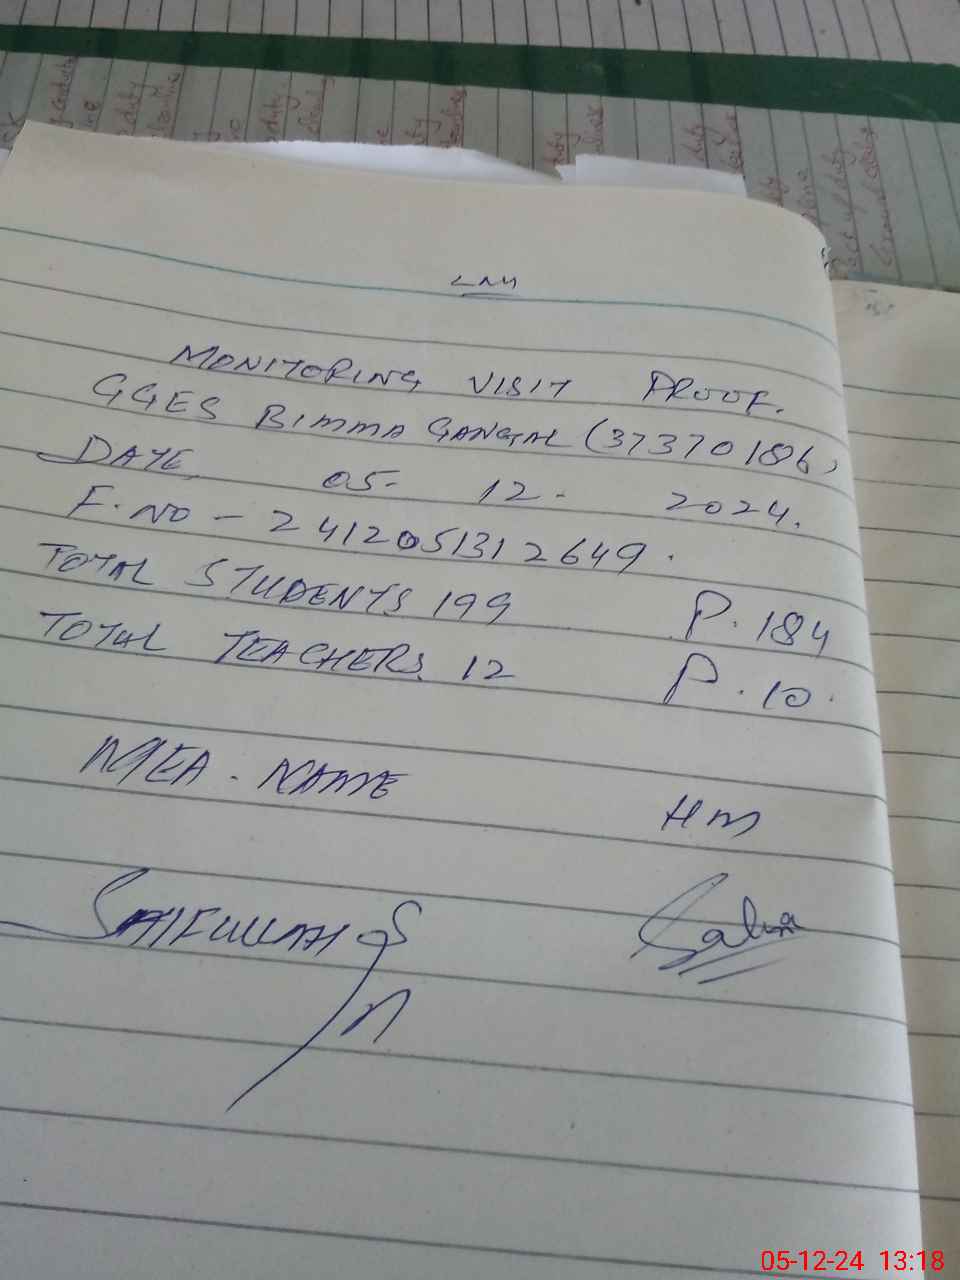 LNM
MONITORING VISIT PROOF.
GGES BIMMA GANGAL (37370186)
DATE 05- 12- 2024.
F.NO - 2412051312649.
TOTAL STUDENTS 199 P. 184
TOTAL TEACHERS. 12 P. 10.
MEA. NAME HM
SAIFULLAH Salma
05-12-24 13:18